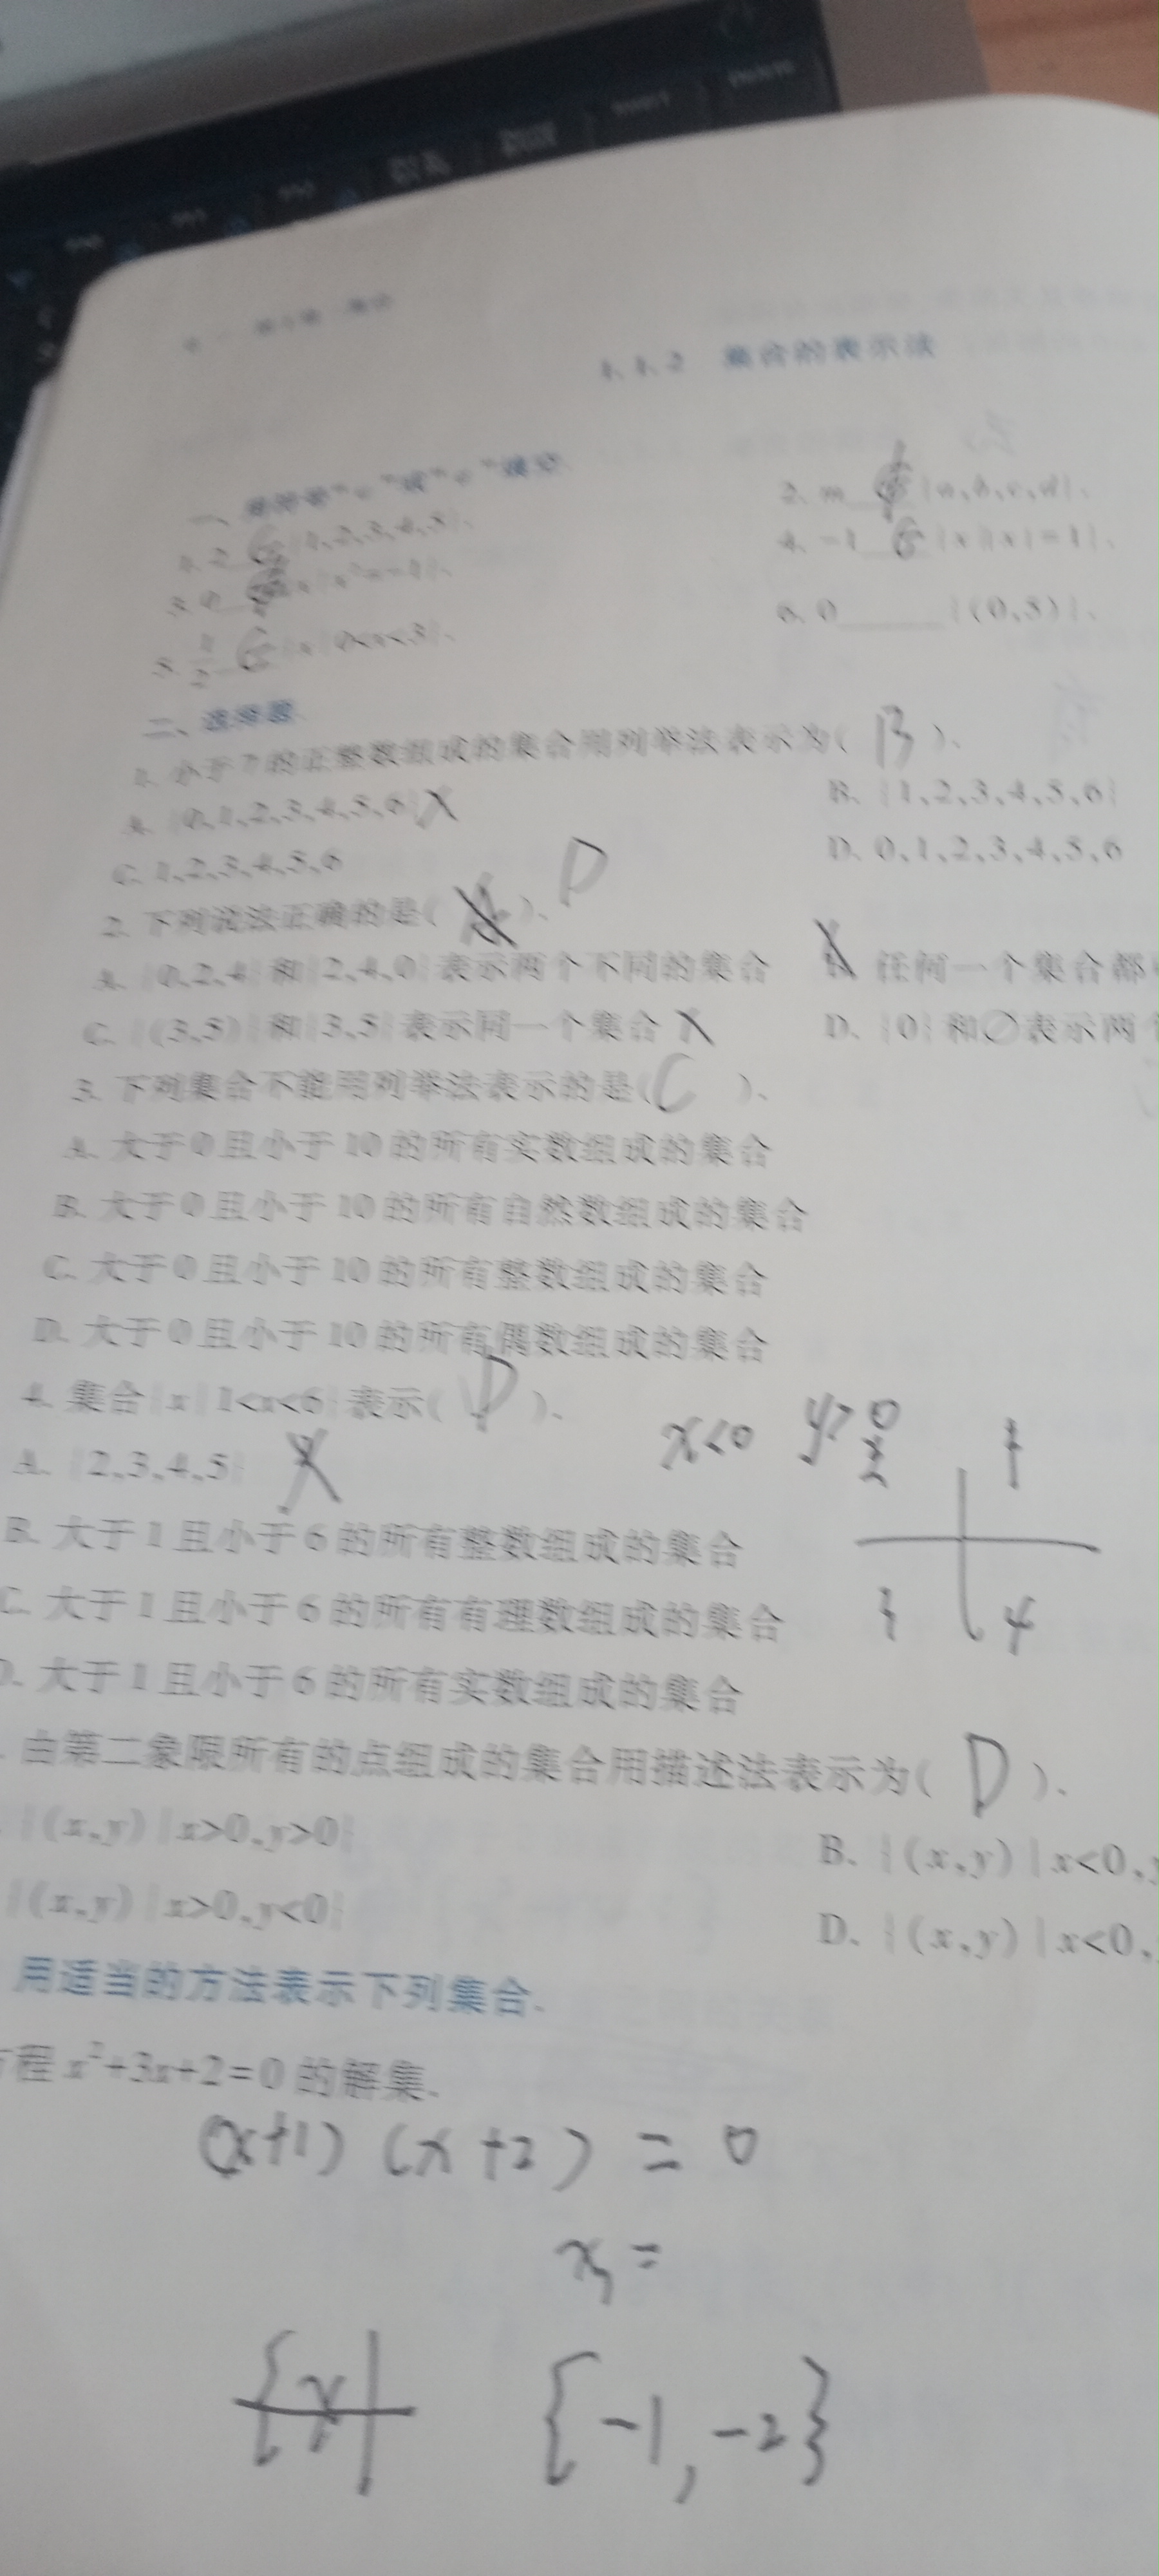 1.1.2 集合的表示法
2. m ∉ {a,b,c,d}.
1. 2 ∈ {1,2,3,4,5}.
4. -1 ∈ {x||x|=1}.
6. 0 {(0,3)}.
5. 1/2 ∈ {x|0<x<3}.
二、选择题.
1. 小于7的正整数组成的集合用列举法表示为( B ).
A. {0,1,2,3,4,5,6} X
B. {1,2,3,4,5,6}
C. 1,2,3,4,5,6
D. 0,1,2,3,4,5,6
2. 下列说法正确的是( ). D
A. {0,2,4}和{2,4,0}表示两个不同的集合
任何一个集合都
C. {(3,5)}和{3,5}表示同一个集合 X
D. {0}和∅表示两
3. 下列集合不能用列举法表示的是( C ).
A. 大于0且小于10的所有实数组成的集合
B. 大于0且小于10的所有自然数组成的集合
C. 大于0且小于10的所有整数组成的集合
D. 大于0且小于10的所有偶数组成的集合
4. 集合{x|1<x<6}表示( D ).
x<0 y>0
A. {2,3,4,5} X
B. 大于1且小于6的所有整数组成的集合
C. 大于1且小于6的所有有理数组成的集合
D. 大于1且小于6的所有实数组成的集合
由第二象限所有的点组成的集合用描述法表示为( D ).
{(x,y)|x>0,y>0}
B. {(x,y)|x<0,y
{(x,y)|x>0,y<0}
D. {(x,y)|x<0,
用适当的方法表示下列集合.
程x²+3x+2=0的解集.
(x+1)(x+2)=0
x=
{-1,-2}